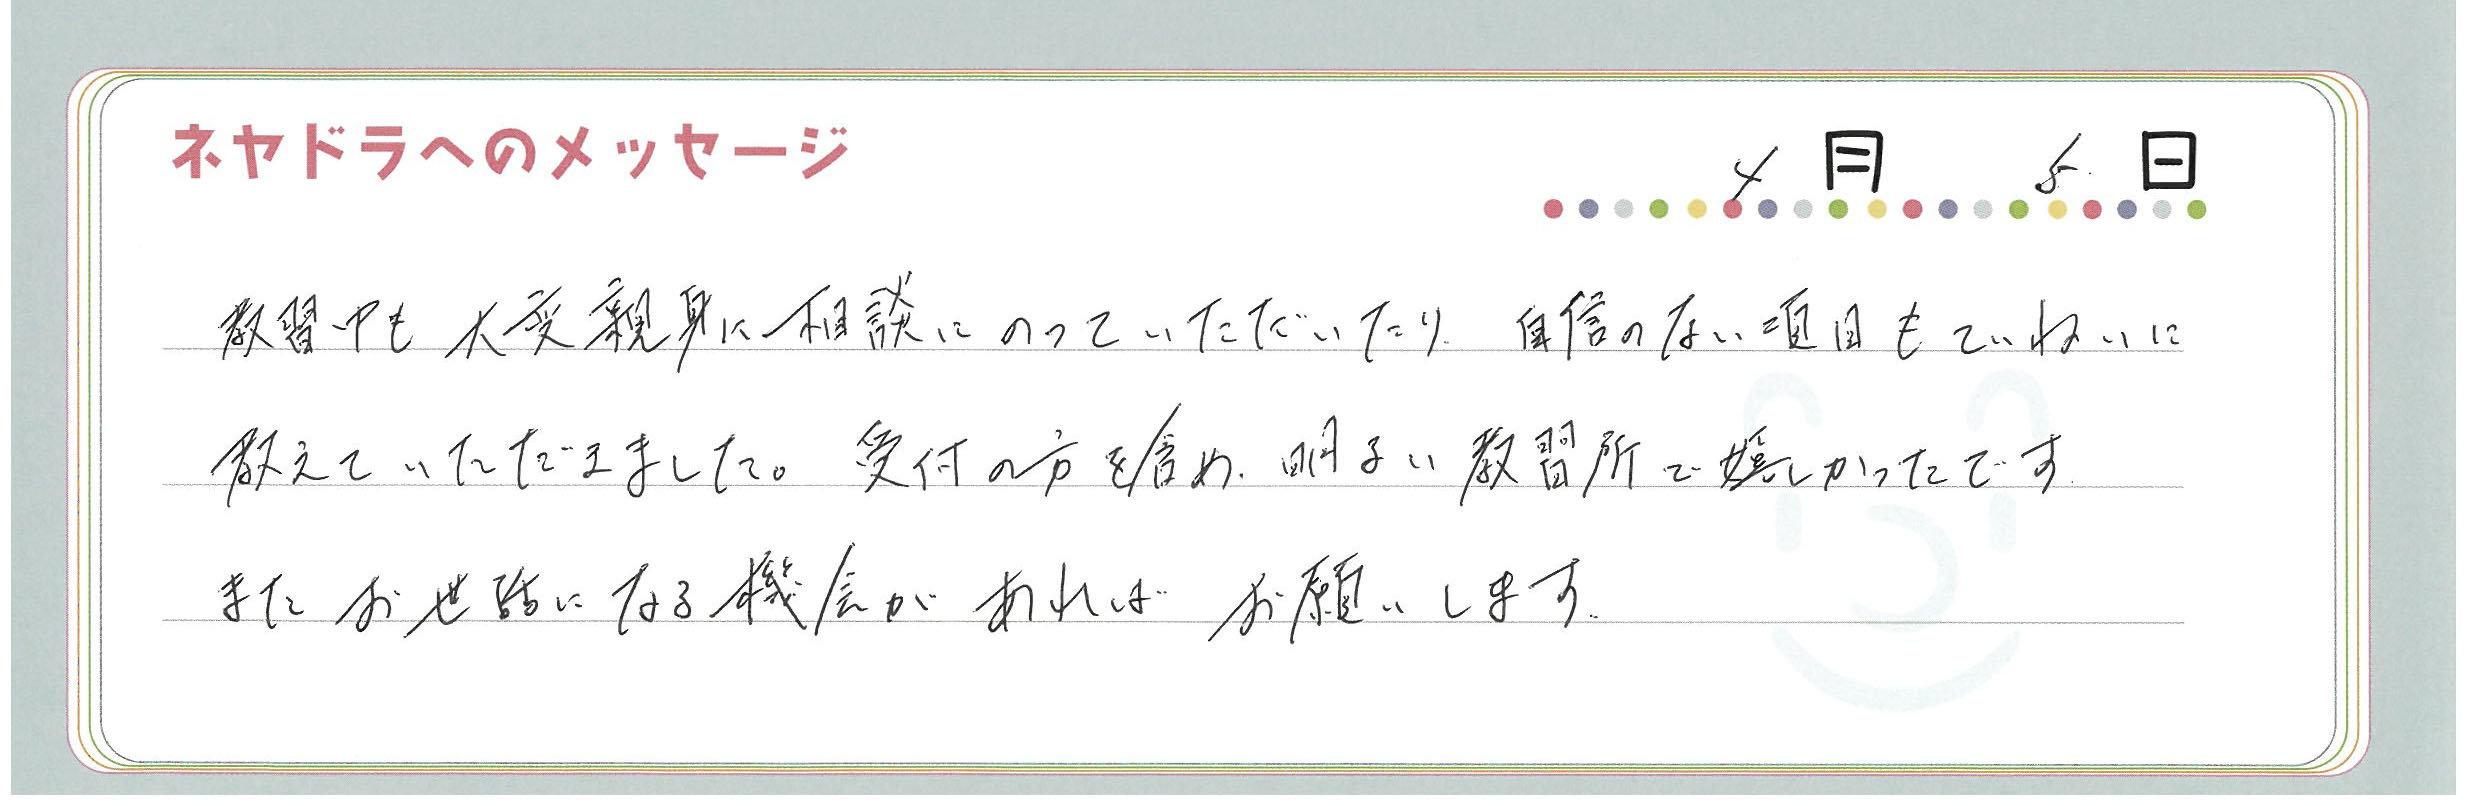 ネヤドラへのメッセージ
4月 5日
教習中も大変親身に相談にのっていただいたり、自信のない項目もていねいに
教えていただきました。受付の方を含め、明るい教習所で嬉しかったです。
またお世話になる機会があればお願いします。